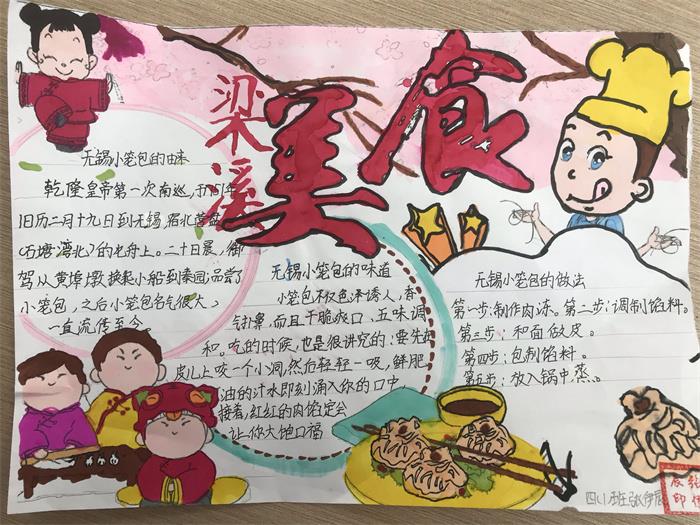 梁溪
美食
无锡小笼包的由来
乾隆皇帝第一次南巡，于同年
旧历二月十九日到无锡，泊北营盘
(石塘湾北)的龙舟上。二十日晨，御
驾从黄埠墩换起小船到秦园，品尝了
小笼包，之后小笼包名气很大，
一直流传至今。
无锡小笼包的味道
小笼包不仅色泽诱人，香
气扑鼻，而且干脆爽口、五味调
和。吃的时候，也是很讲究的：要先在
皮儿上咬一个小洞，然后轻轻一吸，鲜肥
油的汁水即刻涌入你的口中，
接着，红红的肉馅定会
让你大饱口福
无锡小笼包的做法
第一步：制作肉冻。第二步：调制馅料。
第三步：和面做皮。
第四步：包制馅料。
第五步：放入锅中蒸。
四(1)班张